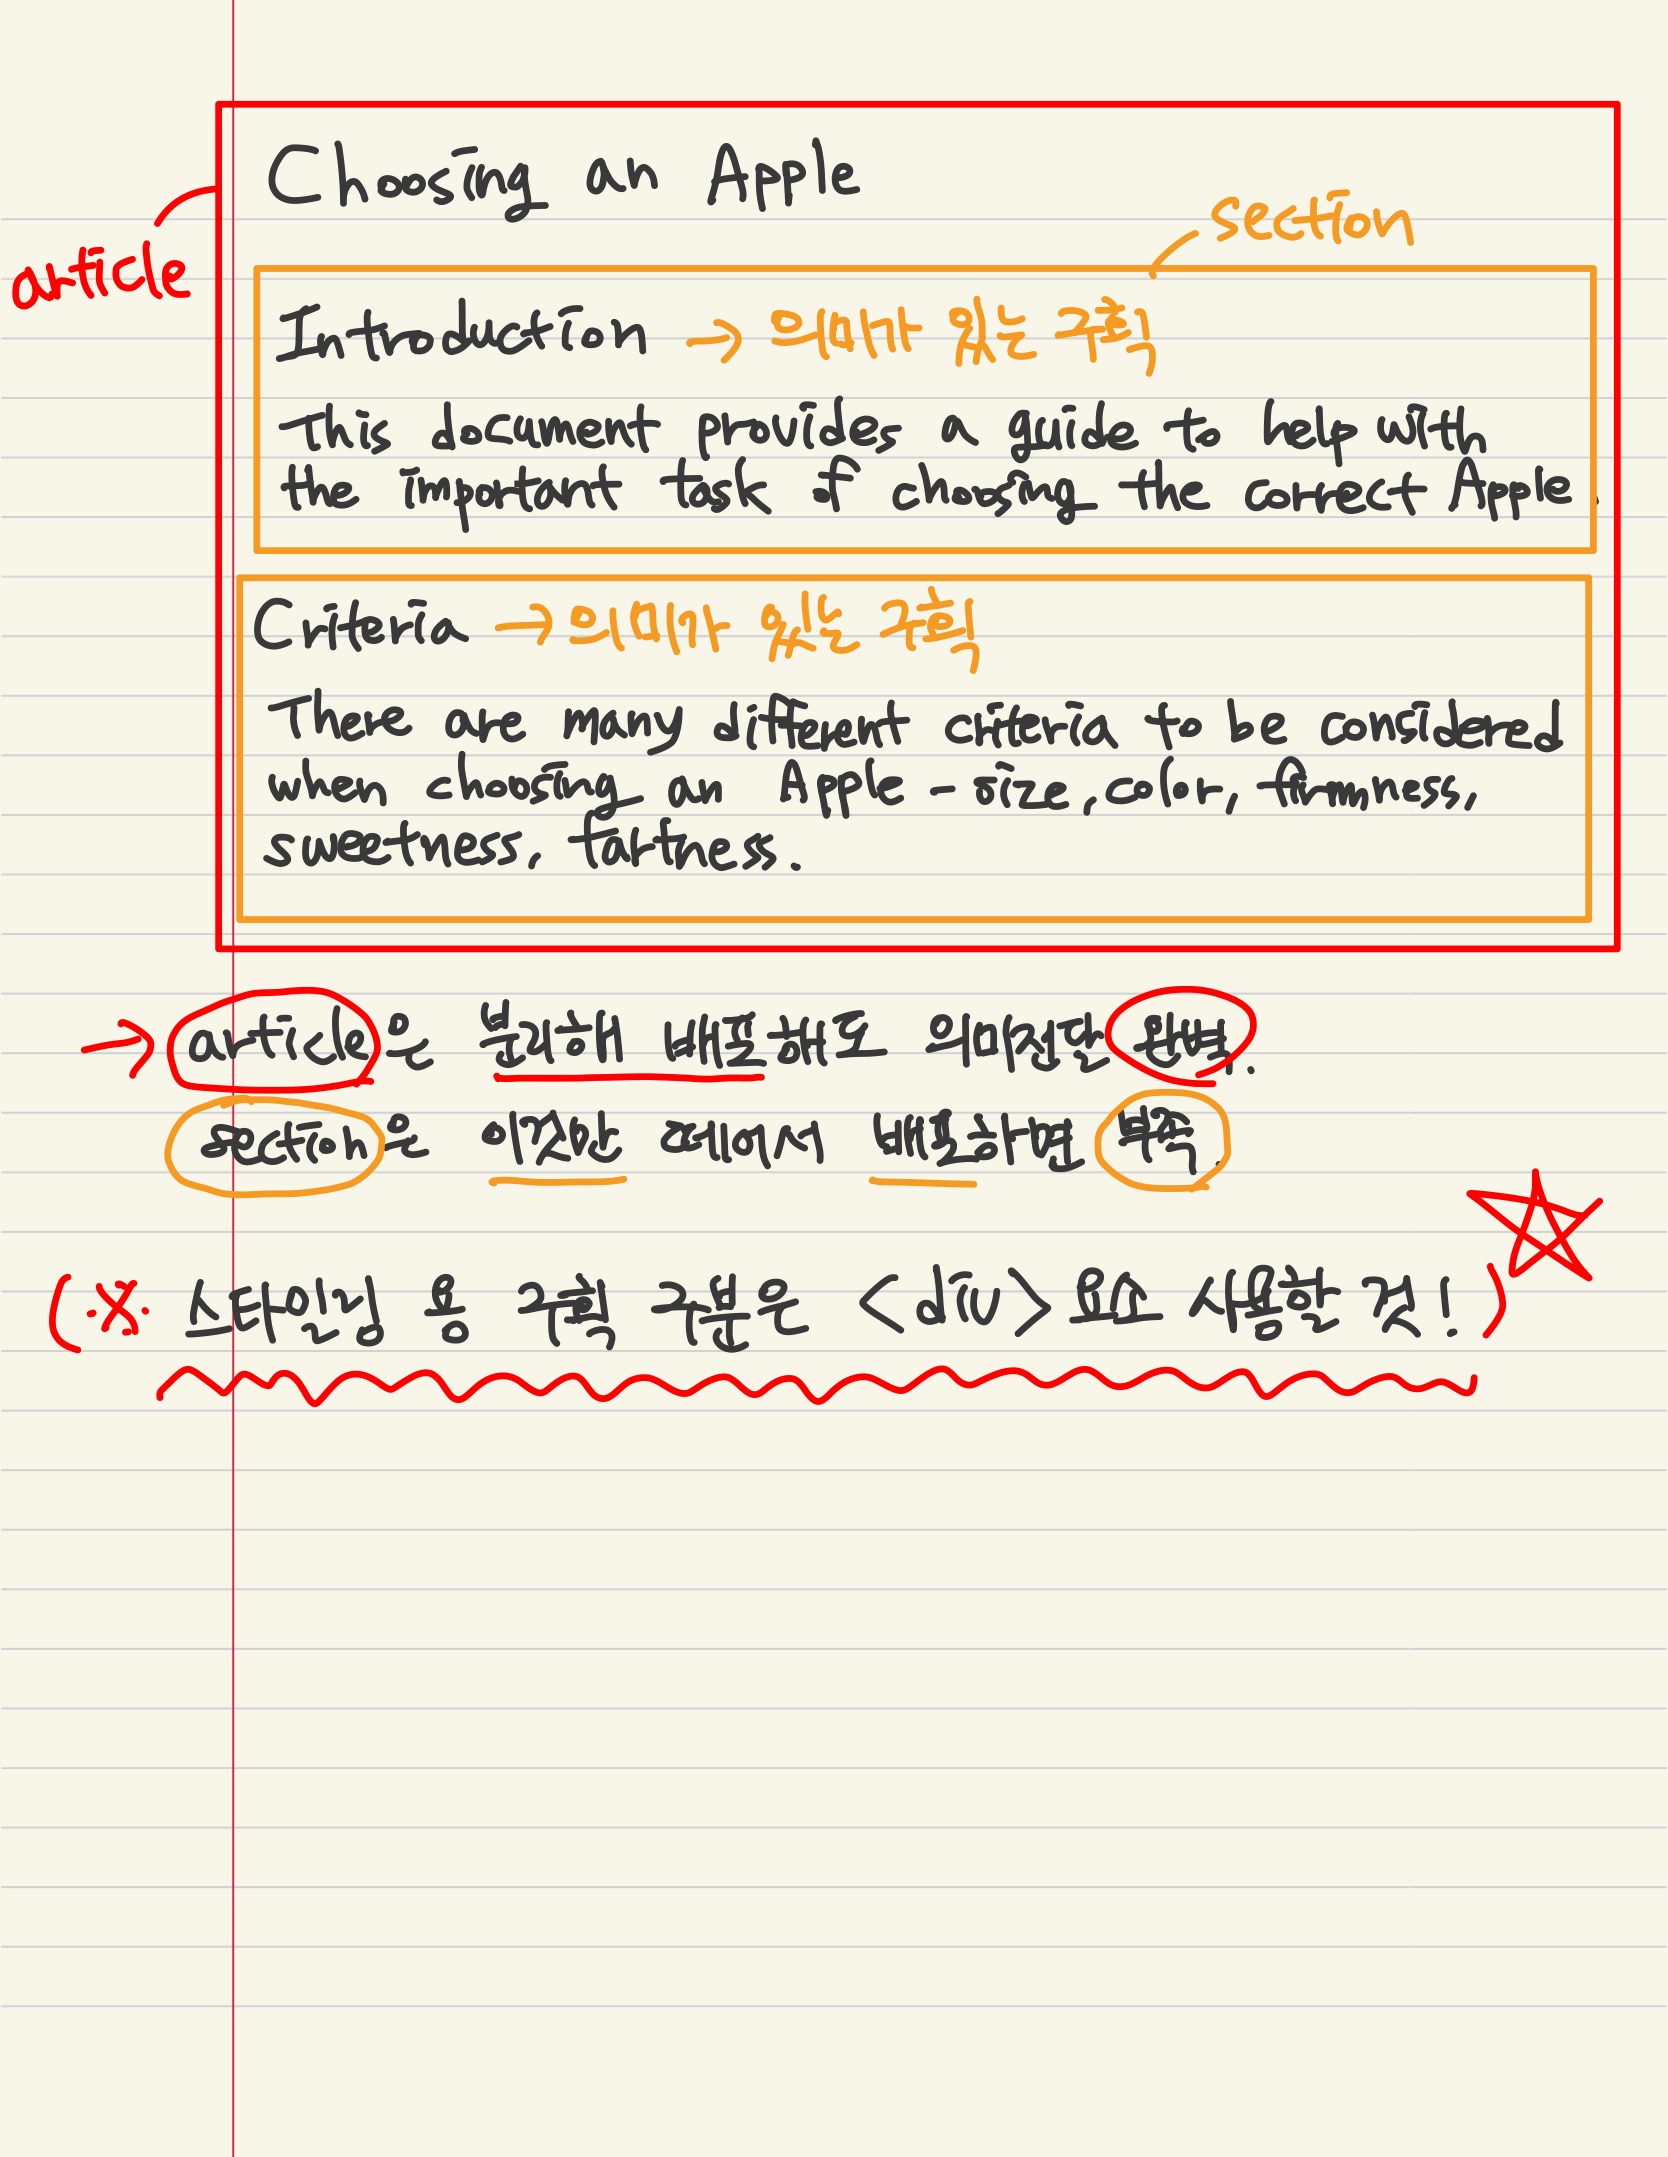 Choosing an Apple
section
article
Introduction → 의미가 있는 구획
This document provides a guide to help with
the important task of choosing the correct Apple.
Criteria → 의미가 있는 구획
There are many different criteria to be considered
when choosing an Apple - size, color, firmness,
sweetness, tartness.
→ article은 분리해 배포해도 의미전달 완벽.
section은 이것만 떼어서 배포하면 부족.
(※ 스타일링 용 구획 구분은 <div> 요소 사용할 것!)